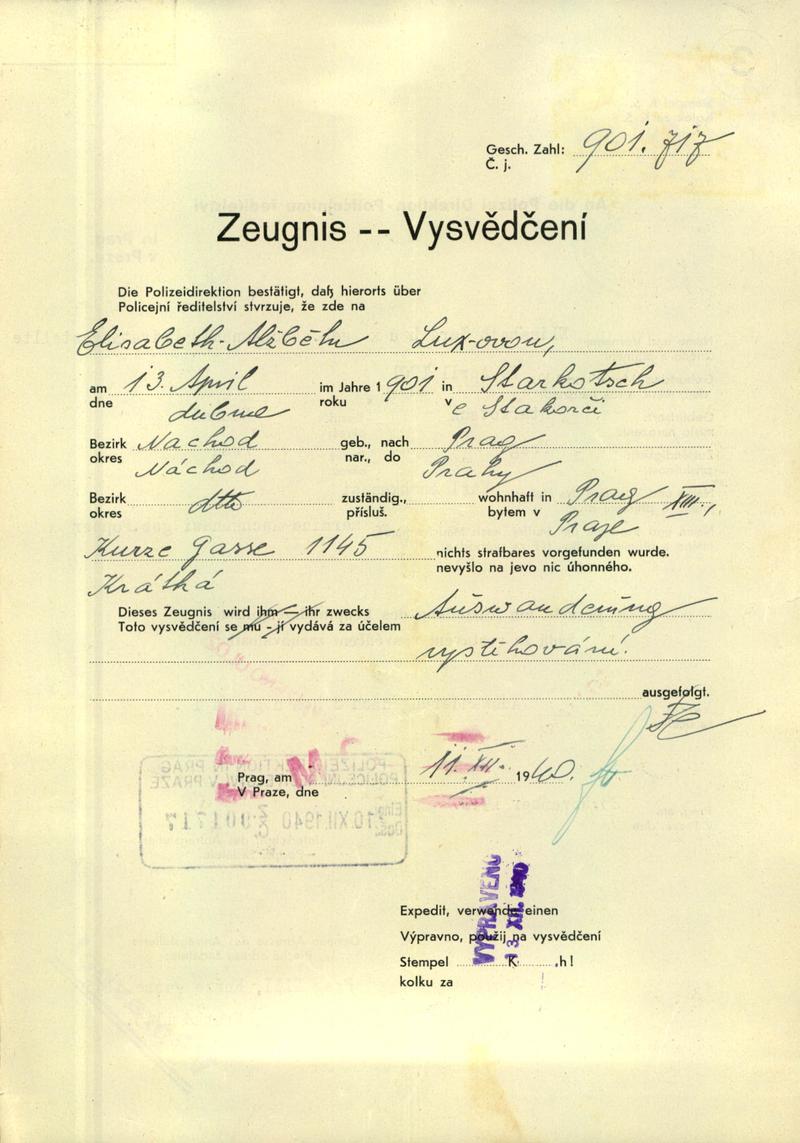 Gesch. Zahl: 901.717
Č. j.
Zeugnis -- Vysvědčení
Die Polizeidirektion bestätigt, daß hierorts über
Policejní ředitelství stvrzuje, že zde na
Elisabeth-Alžbětu Lux-ovou,
am 13. April im Jahre 1901 in Starkotsch
dne dubna roku v e Stakorči
Bezirk Nachod geb., nach Prag
okres Náchod nar., do Prahy
Bezirk dtto zuständig., wohnhaft in Prag XIII.,
okres přísluš. bytem v Praze
Kurze Gasse 1145 nichts strafbares vorgefunden wurde.
Krátká nevyšlo na jevo nic úhonného.
Dieses Zeugnis wird ihm — ihr zwecks Auswanderung
Toto vysvědčení se mu - jí vydává za účelem
vystěhování.
ausgefolgt.
Prag, am 11. XII. 1940.
V Praze, dne
POLIZEIDIREKTION IN PRAG
POLICEJNÍ ŘEDITELSTVÍ V PRAZE
10.XII.1940 901717
VYPRAVENO
13. XII. 1940
Expedit, verwende einen
Výpravno, použij na vysvědčení
Stempel K .h!
kolku za